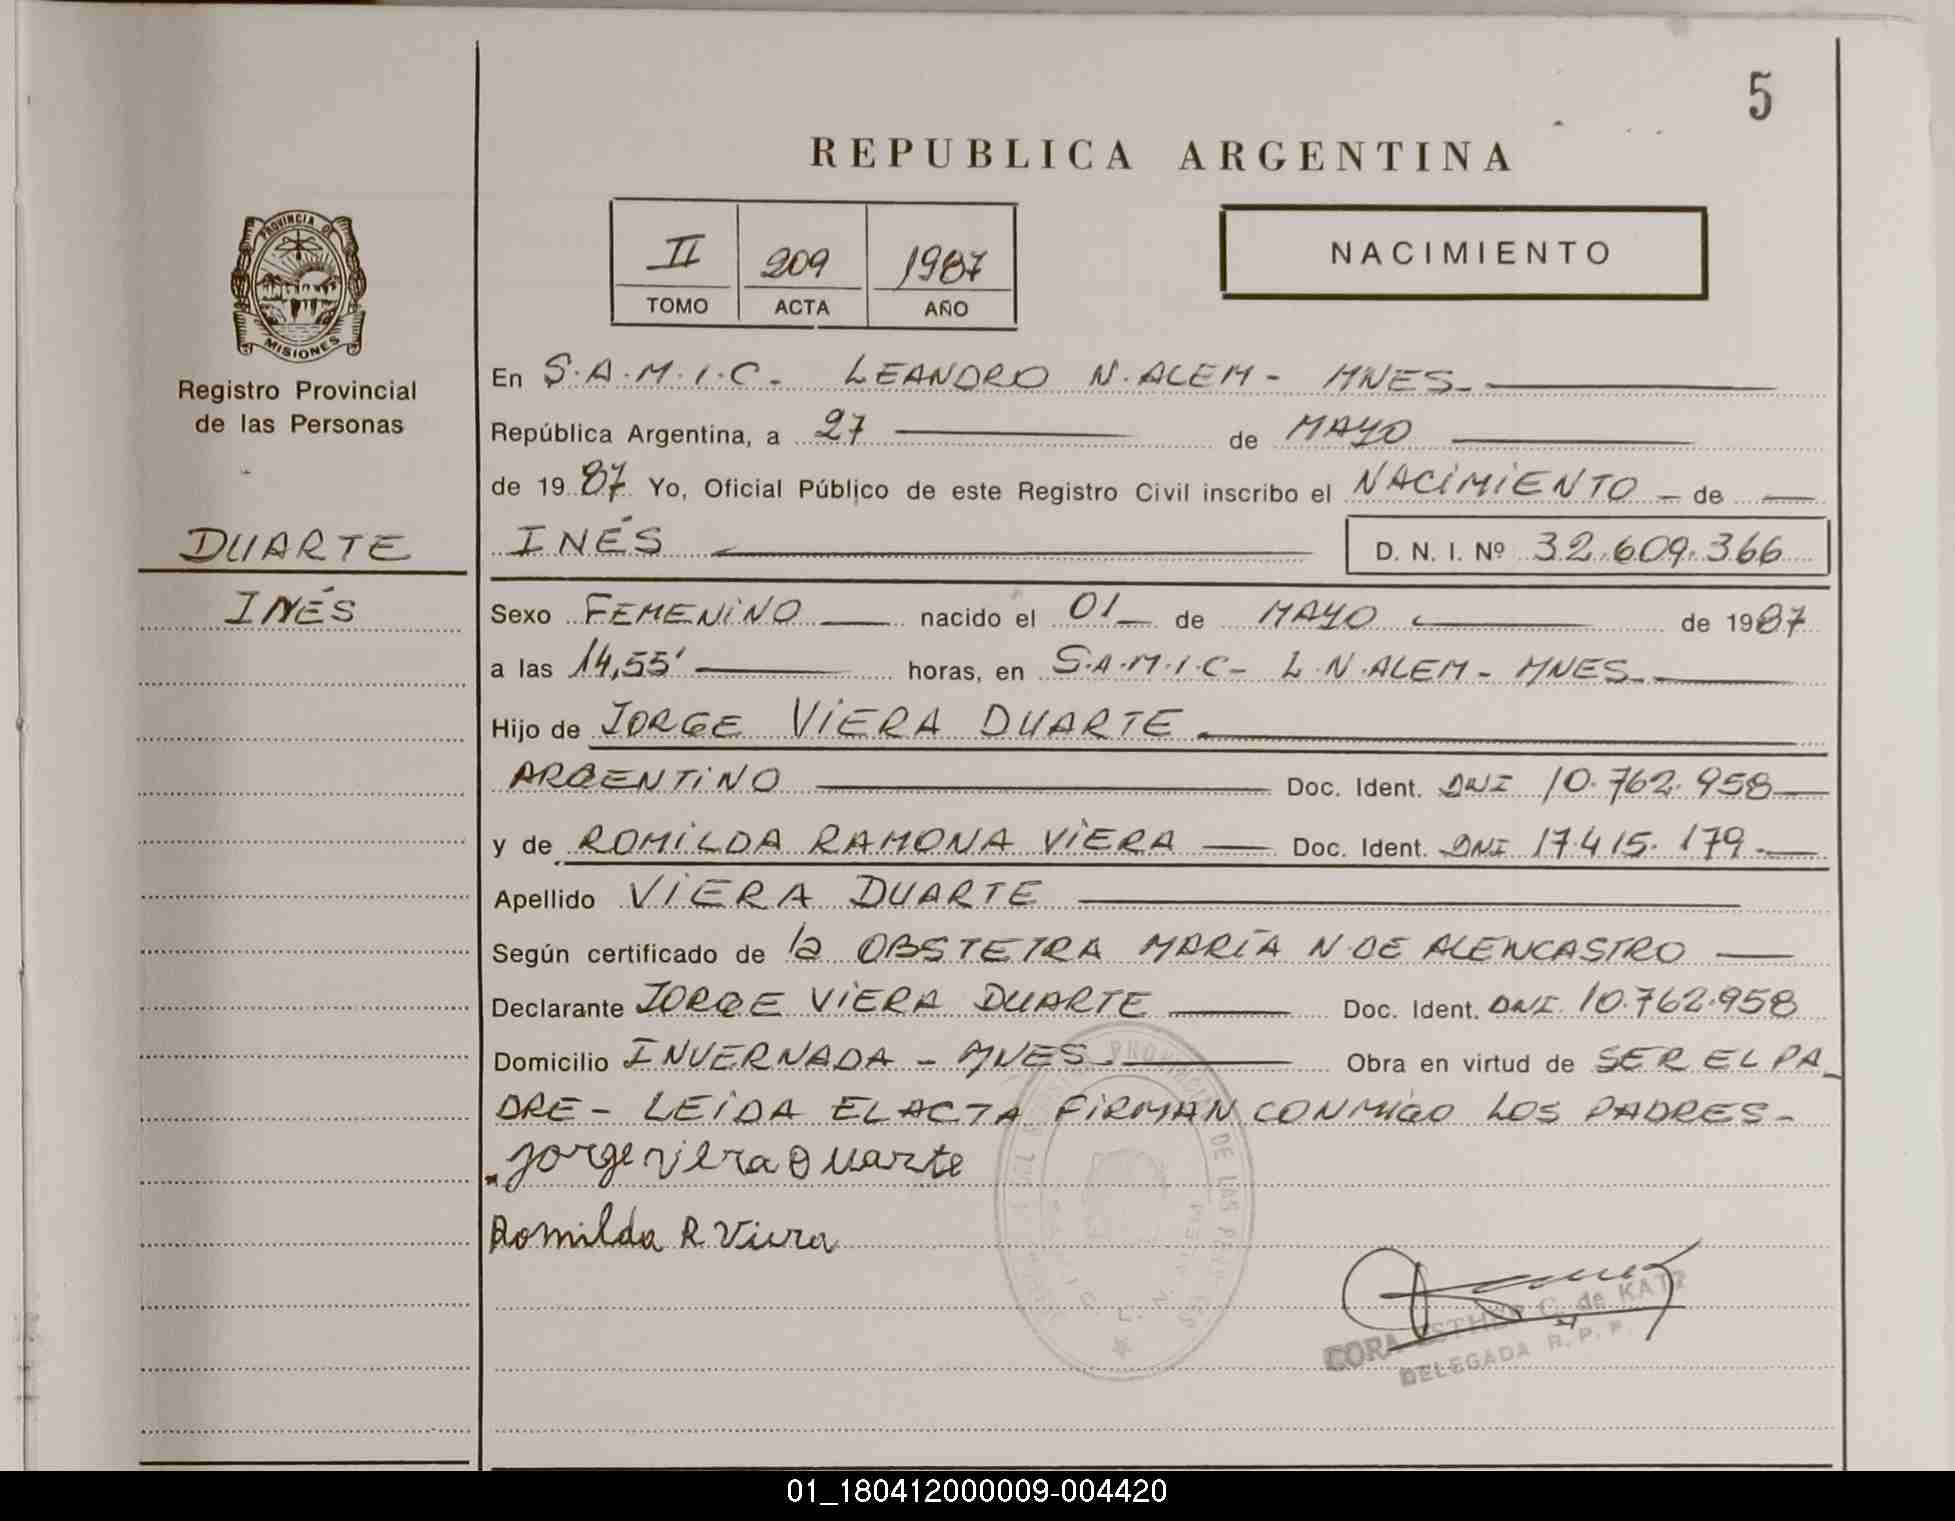 5
REPUBLICA ARGENTINA
PROVINCIA DE
MISIONES
Registro Provincial
de las Personas
II 209 1987
TOMO ACTA AÑO
NACIMIENTO
En S.A.M.I.C. LEANDRO N. ALEM - MNES.
República Argentina, a 27 de MAYO
de 1987 Yo, Oficial Público de este Registro Civil inscribo el NACIMIENTO de
INÉS D. N. I. Nº 32.609.366
DUARTE
INÉS
Sexo FEMENINO nacido el 01 de MAYO de 1987
a las 14,55' horas, en S.A.M.I.C - L.N.ALEM - MNES.
Hijo de JORGE VIERA DUARTE
ARGENTINO Doc. Ident. DNI 10.762.958
y de ROMILDA RAMONA VIERA Doc. Ident. DNI 17.415.179
Apellido VIERA DUARTE
Según certificado de la OBSTETRA MARÍA N. DE ALENCASTRO
Declarante JORGE VIERA DUARTE Doc. Ident. DNI. 10.762.958
Domicilio INVERNADA - MNES. Obra en virtud de SER EL PA_
DRE - LEIDA EL ACTA FIRMAN CONMIGO LOS PADRES -
Jorge viera Duarte
Romilda R Viera
CORA ESTHER C. de KATZ
DELEGADA R. P. P.
01_180412000009-004420